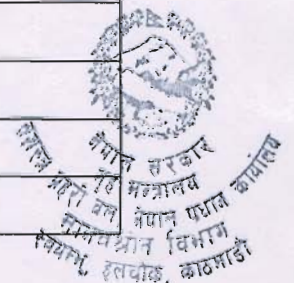 नेपाल सरकार
गृह मन्त्रालय
सशस्त्र प्रहरी बल नेपाल प्रधान कार्यालय
विभाग
हलचोक, काठमाडौं